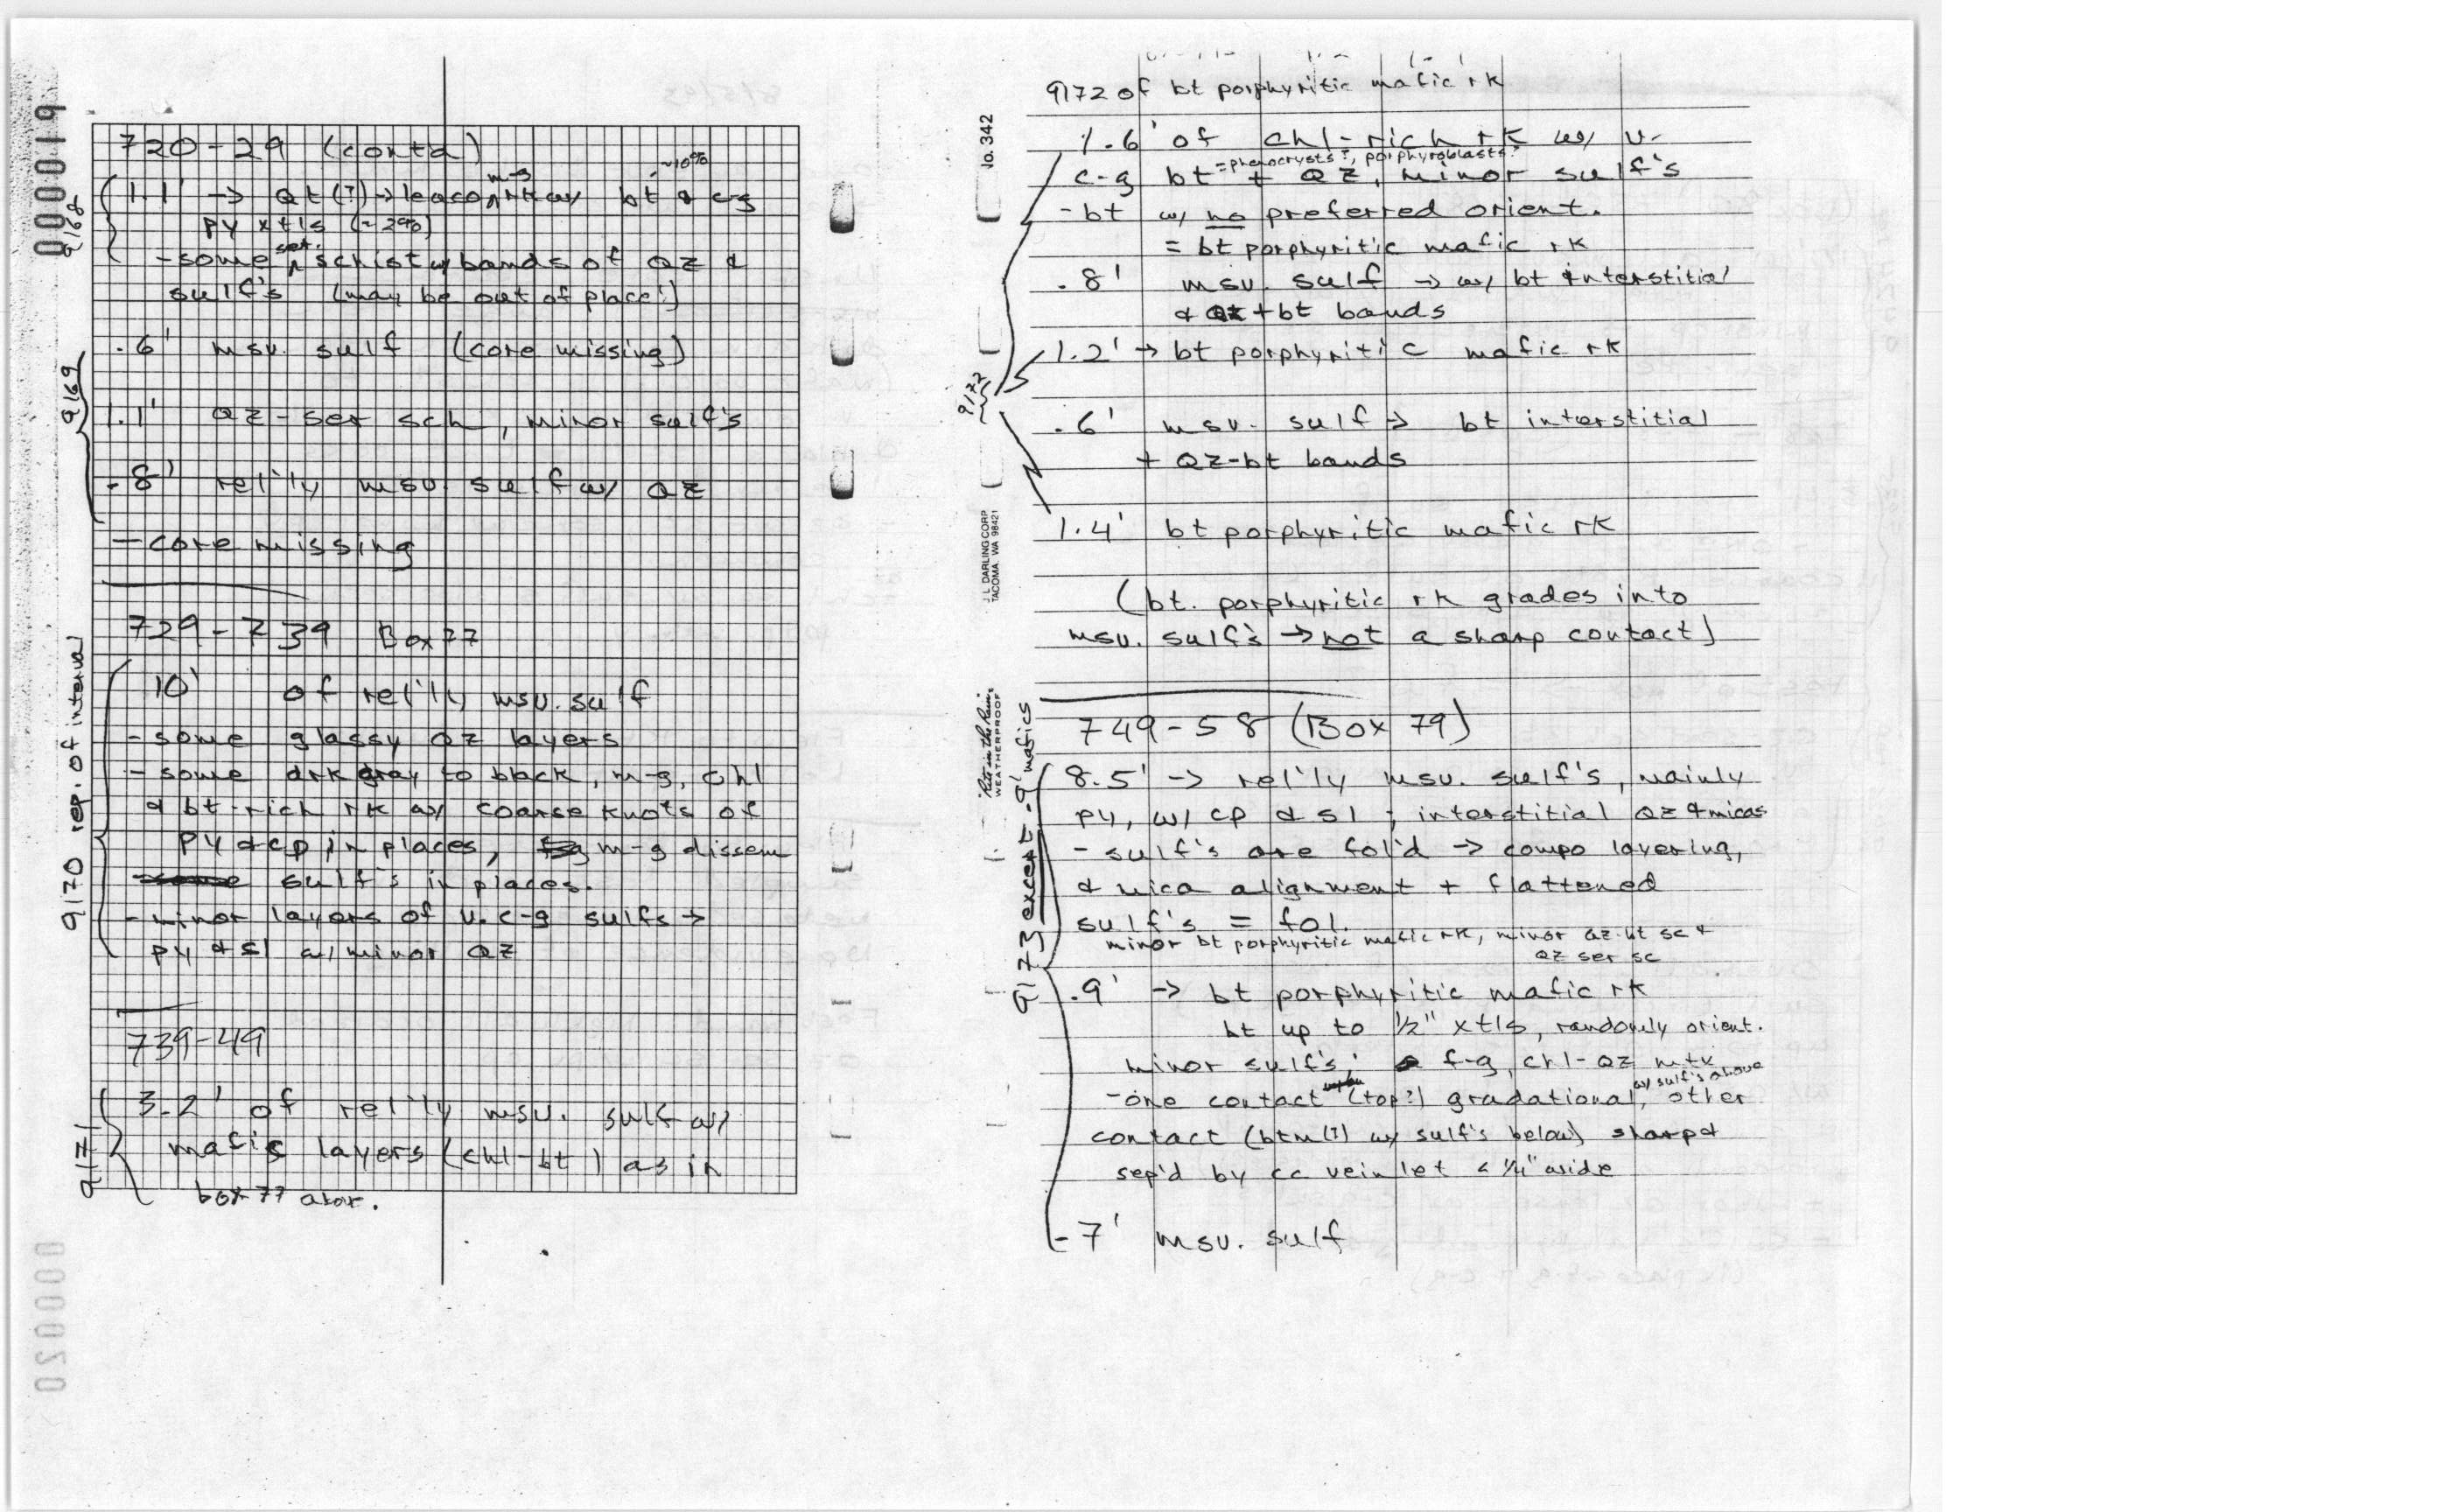 720-29 (contd)
1.1' → Qt(?) → leuco m-g rk w/ ~10% bt & c-g
py xtls (~2%)
-some ser. schist w/ bands of QZ &
sulf's (may be out of place!)
9168
.6' msv. sulf (core missing)
1.1' QZ-ser sch, minor sulf's
.8' rel'ly msv sulf w/ QZ
9169
-core missing
729-739 Box 77
10' of rel'ly msv. sulf
- some glassy QZ layers
- some drk gray to black, m-g, chl
& bt-rich rk w/ coarse knots of
py & cp in places, m-g dissem
sulf's in places.
- minor layers of v. c-g sulfs →
py & sl w/ minor QZ
9170 rep. of interval
739-49
3.2' of rel'ly msv. sulf w/
mafic layers (chl-bt) as in
box 77 above.
9171
000019
000020
9172 of bt porphyritic mafic rk
1.6' of chl-rich rk w/ v.
=phenocrysts?, porphyroblasts?
c-g bt + QZ, minor sulf's
-bt w/ no preferred orient.
= bt porphyritic mafic rk
.8' msv. sulf → w/ bt interstitial
& QZ+bt bands
1.2' → bt porphyritic mafic rk
9172
.6' msv. sulf → bt interstitial
+ QZ-bt bands
1.4' bt porphyritic mafic rk
(bt. porphyritic rk grades into
msv. sulf's → not a sharp contact)
749-58 (Box 79)
8.5' → rel'ly msv. sulf's, mainly
py, w/ cp & sl; interstitial QZ & micas
- sulf's are fol'd → compo layering,
& mica alignment + flattened
sulf's = fol.
minor bt porphyritic mafic rk, minor QZ-bt sc &
QZ ser sc
.9' → bt porphyritic mafic rk
bt up to 1/2" xtls, randomly orient.
minor sulf's; f-g, chl-QZ mtx
-one contact (top?) gradational w/ sulf's above, other
contact (btm(?) w/ sulf's below) sharp &
sep'd by cc veinlet < 1/4" wide
.7' msv. sulf
9173 except .9' mafics
No. 342
J. L. DARLING CORP
TACOMA WA 98421
Rite in the Rain
WEATHERPROOF